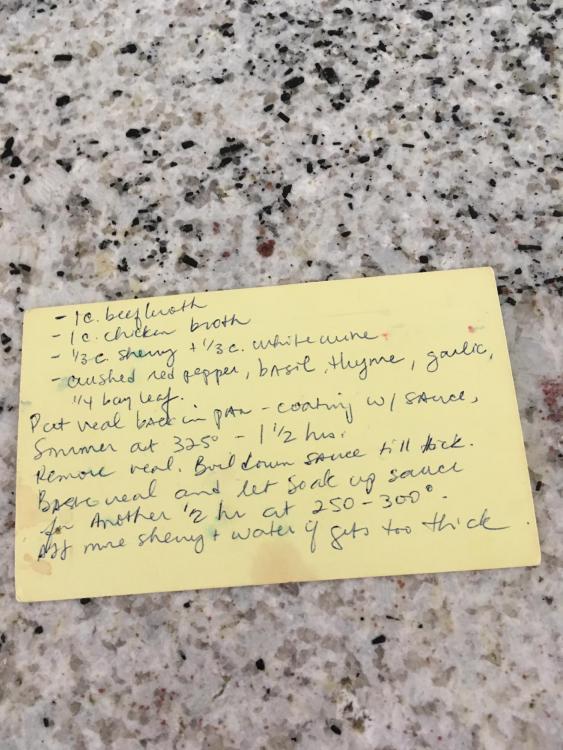 - 1 c. beef broth
- 1 c. chicken broth
- 1/3 c. sherry + 1/3 c. white wine
- crushed red pepper, basil, thyme, garlic,
1/4 bay leaf.
Put veal back in pan - coating w/ sauce,
Simmer at 325° - 1 1/2 hrs.
Remove veal. Boil down sauce till thick.
Baste veal and let soak up sauce
for Another 1/2 hr at 250-300°.
more sherry + water if gets too thick.